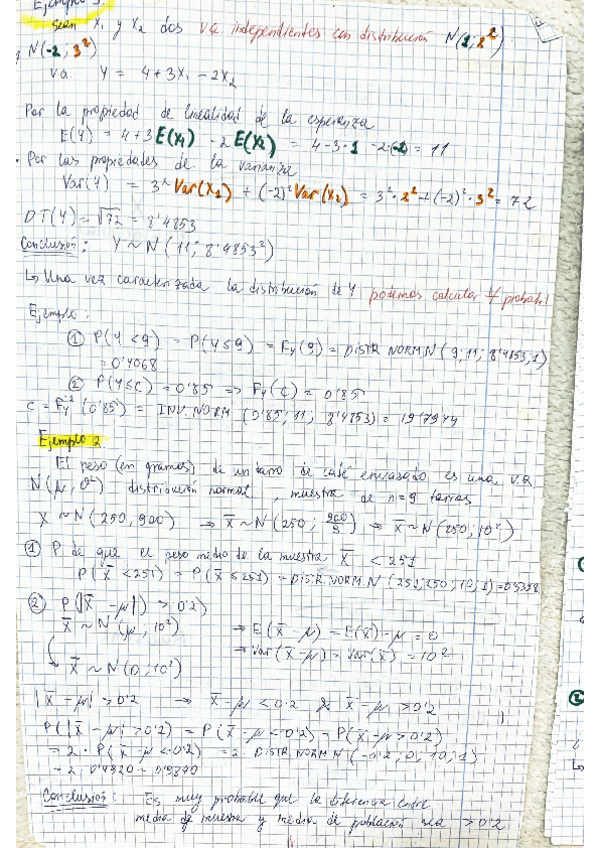 Ejemplo 1.
Sean X₁ y X₂ dos v.a. independientes con distribución N(1; 2²)
y N(-2, 3²)
v.a. Y = 4 + 3X₁ - 2X₂
Por la propiedad de linealidad de la esperanza
E(Y) = 4 + 3 E(X₁) - 2 E(X₂) = 4 - 3·1 - 2·(-2) = 11
· Por las propiedades de la varianza
Var(Y) = 3² Var(X₁) + (-2)² Var(X₂) = 3²·2² + (-2)²·3² = 72
DT(Y) = √72 = 8'4853
Conclusión: Y ~ N(11; 8'4853²)
↳ Una vez caracterizada la distribución de Y podemos calcular ∀ probabil
Ejemplo:
① P(Y < 9) = P(Y ≤ 9) = F_Y(9) = DISTR.NORM.N(9; 11; 8'4853; 1)
= 0'4068
② P(Y ≤ c) = 0'85 ⇒ F_Y(c) = 0'85
c = F_Y⁻¹(0'85) = INV.NORM(0'85; 11; 8'4853) = 19'7944
Ejemplo 2
El peso (en gramos) de un tarro de café envasado es una v.a.
N(μ, σ²) distribución normal, muestra de n=9 tarros
X ~ N(250, 900) ⇒ X̄ ~ N(250; 900/9) ⇒ X̄ ~ N(250; 10²)
① P de que el peso medio de la muestra X̄ < 251
P(X̄ < 251) = P(X̄ ≤ 251) = DISTR.NORM.N(251; 250; 10; 1) = 0'5358
② P(|X̄ - μ|) > 0'2)
X̄ ~ N(μ, 10²) ⇒ E(X̄ - μ) = E(X̄) - μ = 0
⇒ Var(X̄ - μ) = Var(X̄) = 10²
↳ X̄ ~ N(0; 10²)
|X̄ - μ| > 0'2 → X̄ - μ < 0'2 & X̄ - μ > 0'2
P(|X̄ - μ| > 0'2) = P(X̄ - μ < 0'2) - P(X̄ - μ > 0'2)
= 2 · P(X̄ - μ < 0'2) = 2 · DISTR.NORM.N(-0'2; 0; 10; 1)
= 2 · 0'4920 = 0'9840
Conclusión: Es muy probable que la diferencia entre
media de muestra y media de población sea > 0'2